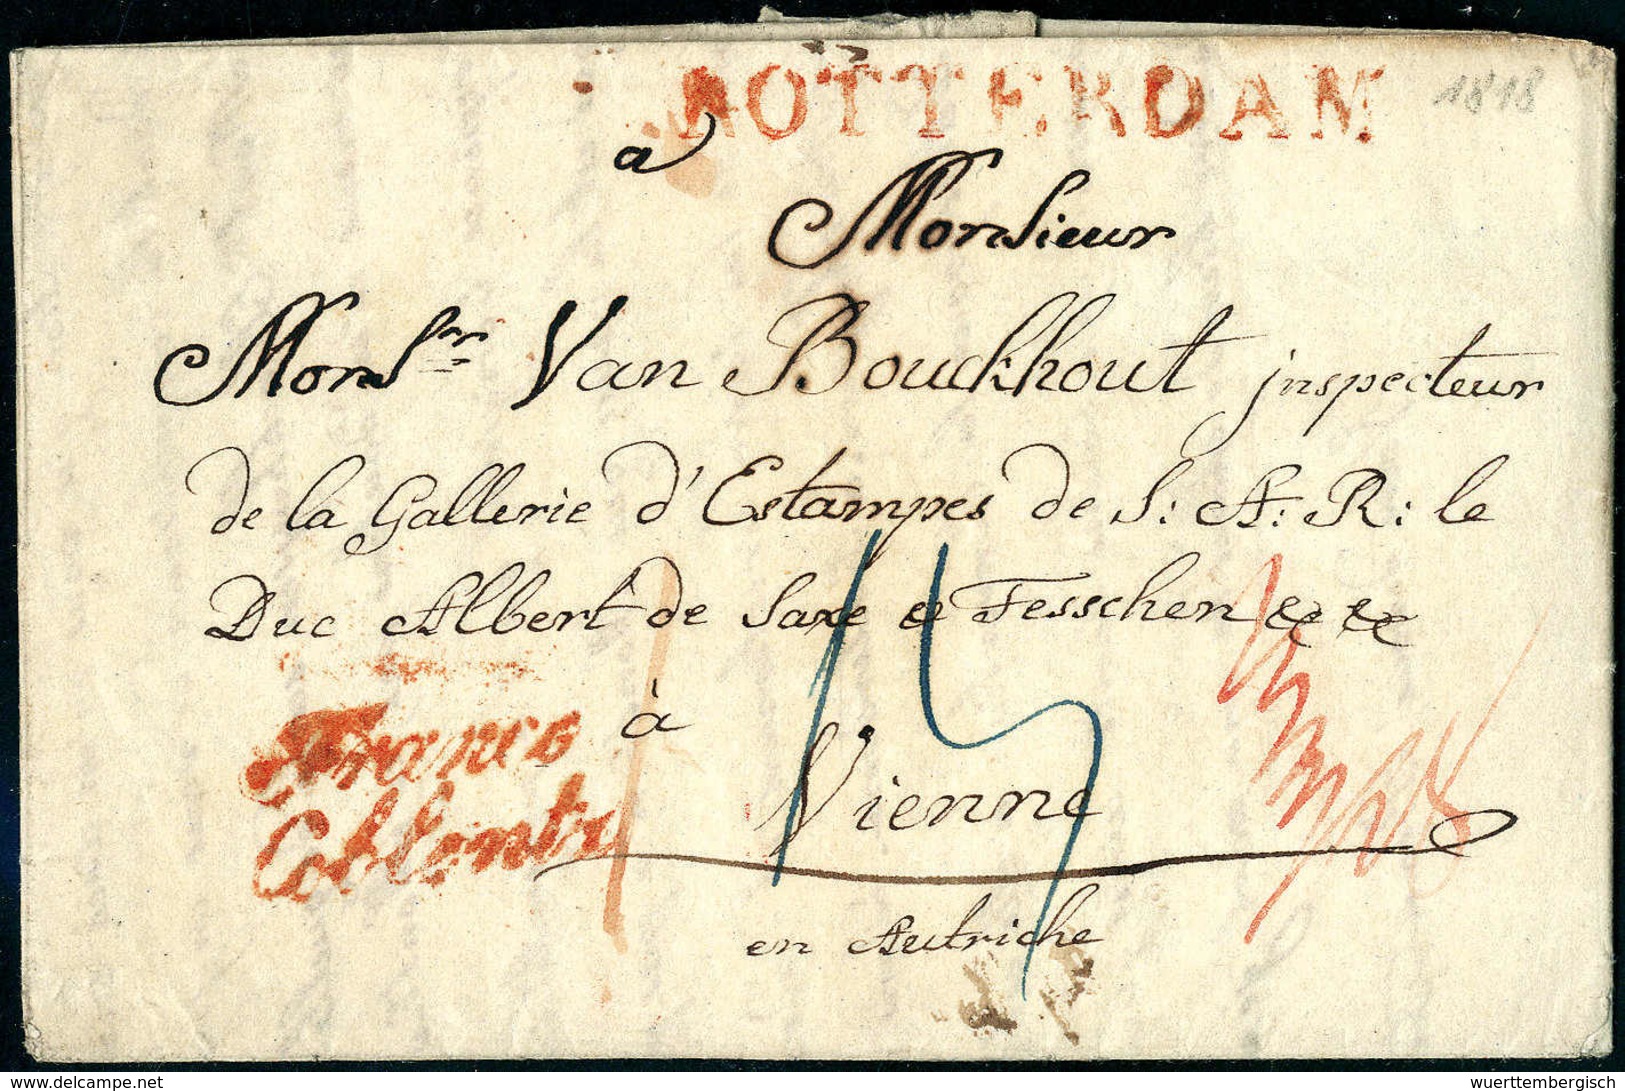 ROTTERDAM 1818
a
Monsieur
Monsr Van Bouckhout jnspecteur
de la Gallerie d'Estampes de S: A: R: le
Duc Albert de Saxe & Tesschen &c &c
Franco
Coblentz
à
Vienne
en Autriche
www.delcampe.net
wuerttembergisch